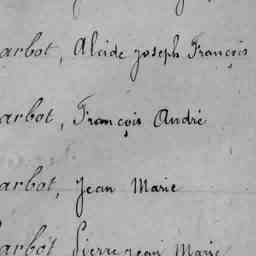 arbot, Alcide Joseph François
arbot, François André
arbot, Jean Marie
arbot Pierre Jean Marie